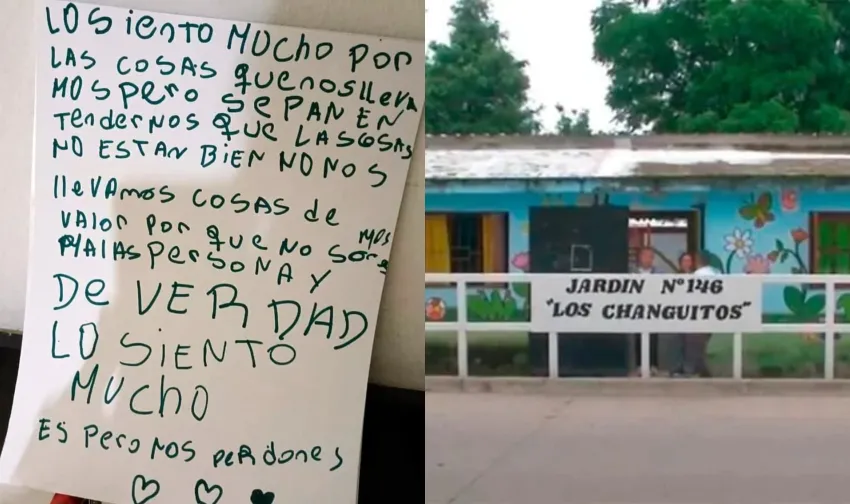 LOSiento MUcho Por
LAS COSAS quenoslleva
MOS Pero SePAN EN
Tendernos que LASCOSAS
NO ESTAN BieN NO NOS
llevAmos COSAS de
VALor Por que No Somos
MALAS PersonA Y
De VERDAD
LO SiENTO
MUCho
ES Pero NOS PERdones
JARDIN Nº146
"LOS CHANGUITOS"